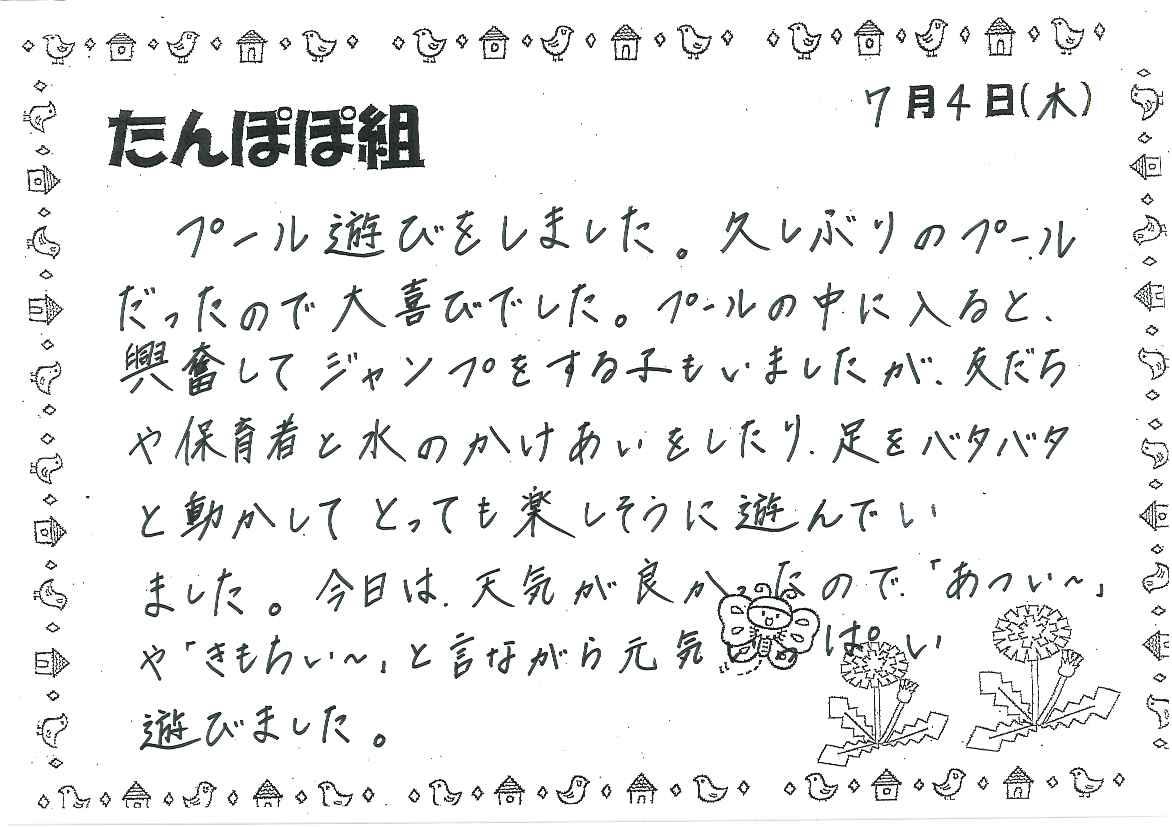 7月4日(木)
たんぽぽ組
プール遊びをしました。久しぶりのプール
だったので大喜びでした。プールの中に入ると、
興奮してジャンプをする子もいましたが、友だち
や保育者と水のかけあいをしたり、足をバタバタ
と動かしてとっても楽しそうに遊んでい
ました。今日は、天気が良かったので、「あつい〜」
や「きもちい〜」と言ながら元気いっぱい
遊びました。